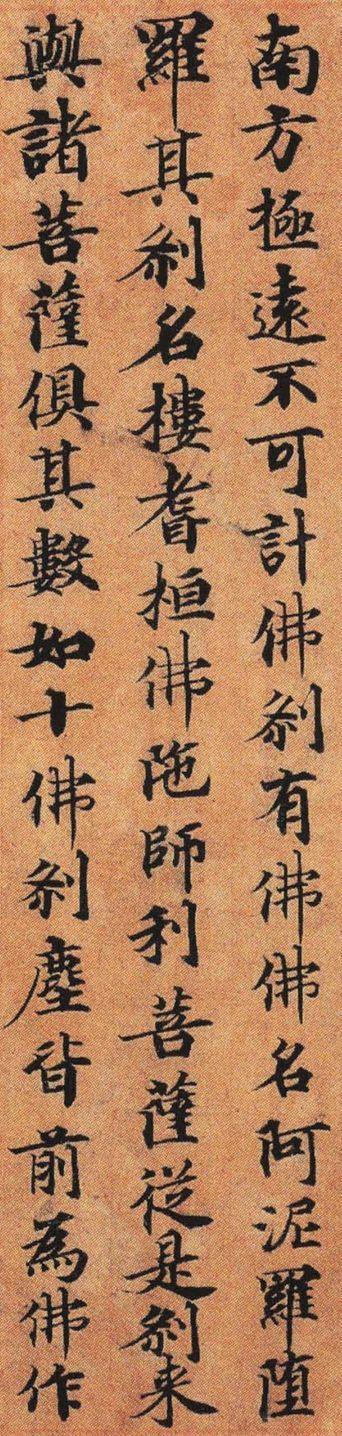 南方極遠不可計佛刹有佛佛名阿泥羅堕
羅其刹名樓耆桓佛陁師利菩薩從是刹来
與諸菩薩俱其數如十佛刹塵皆前為佛作